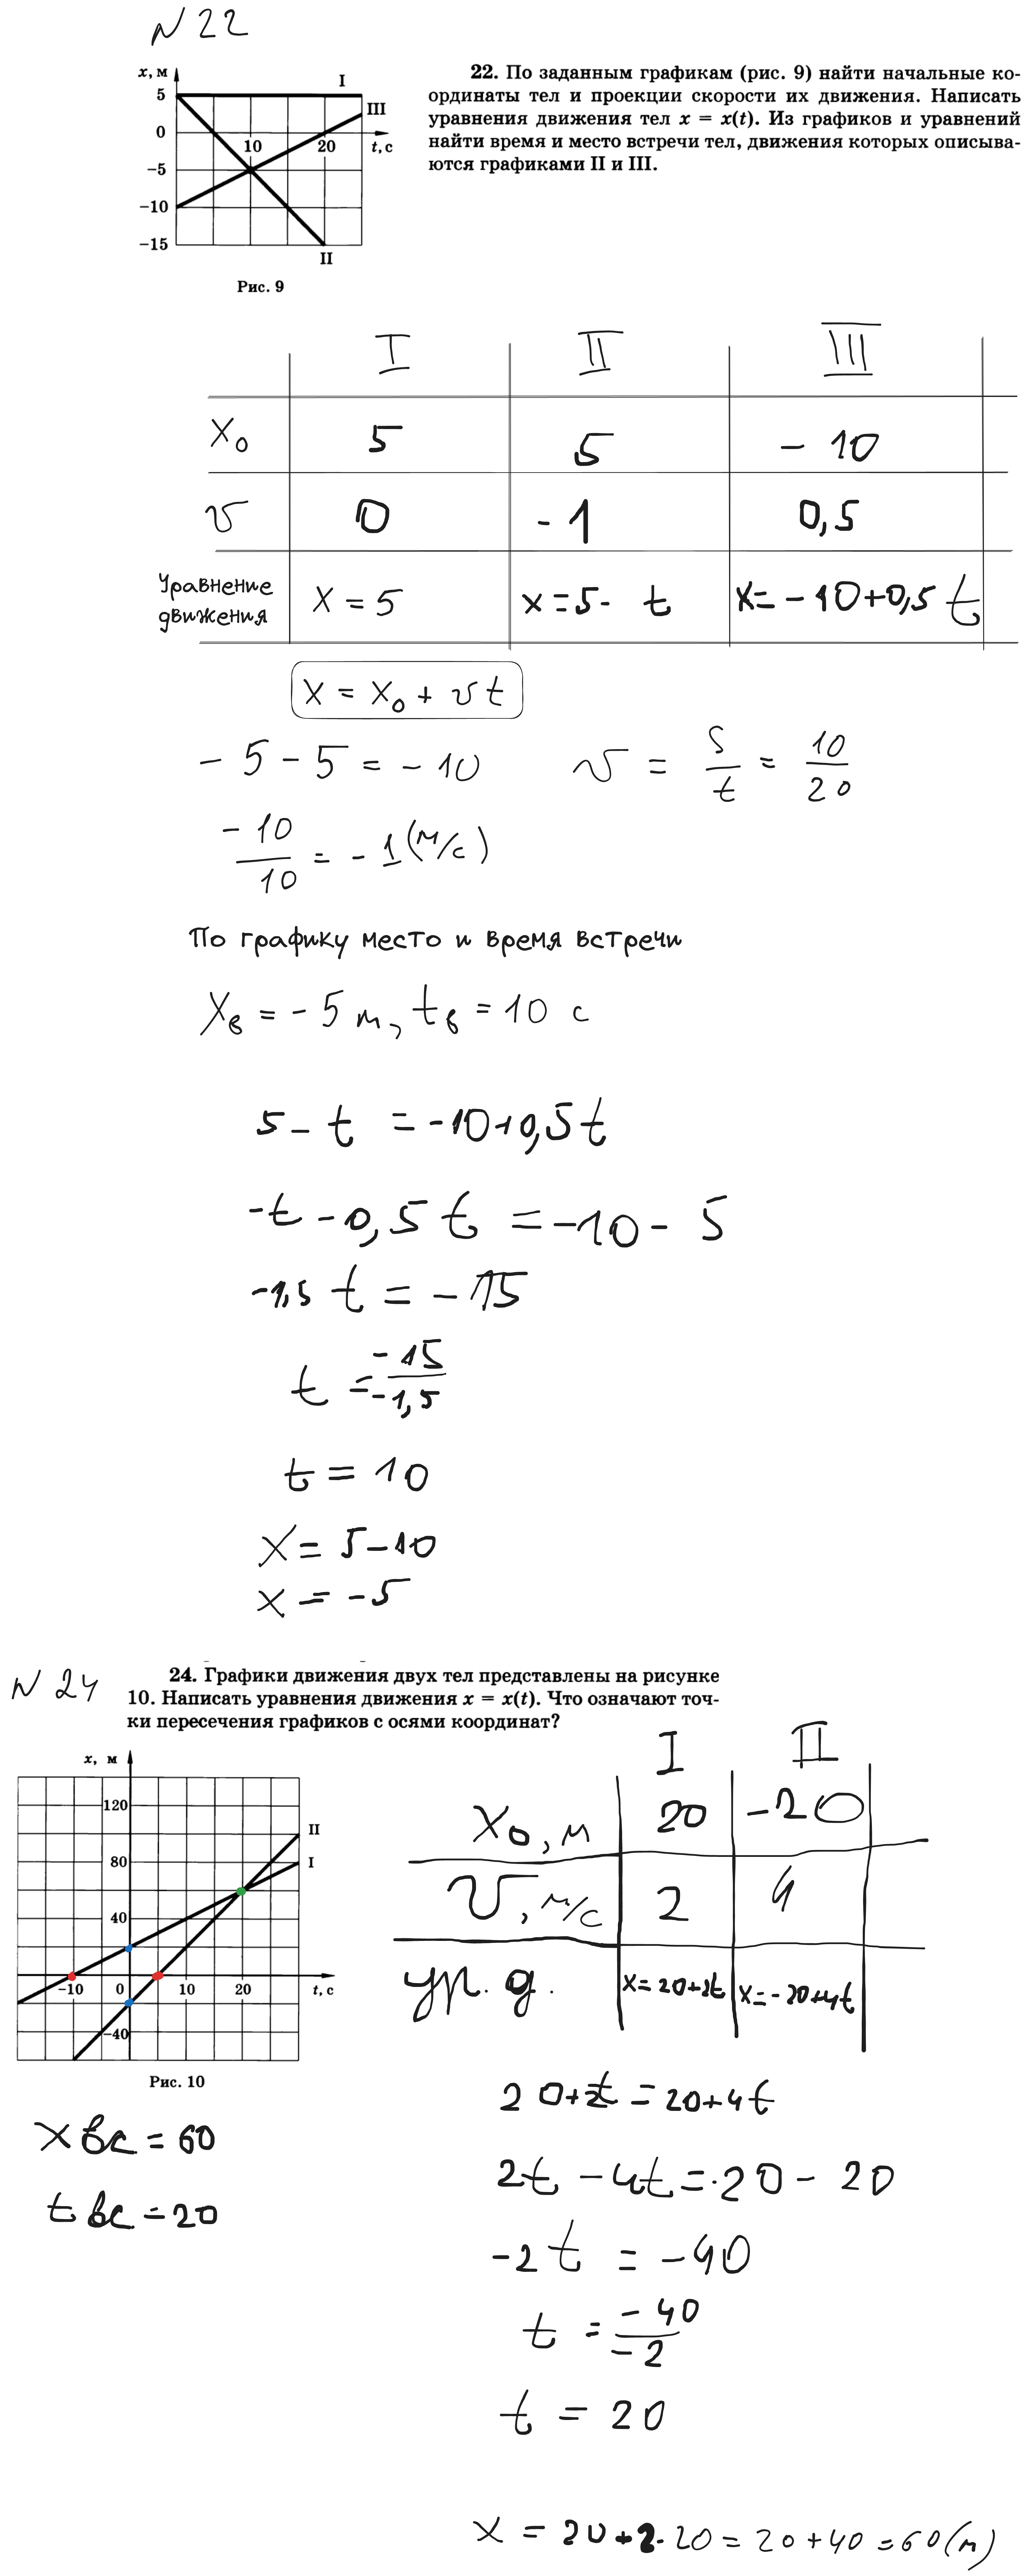 N 22
x, м
I
5
III
0
10
20
t, с
−5
−10
−15
II
Рис. 9
22. По заданным графикам (рис. 9) найти начальные ко-
ординаты тел и проекции скорости их движения. Написать
уравнения движения тел x = x(t). Из графиков и уравнений
найти время и место встречи тел, движения которых описыва-
ются графиками II и III.
I II III
x₀ 5 5 - 10
v 0 - 1 0,5
Уравнение
движения
x = 5 x = 5 - t x = - 10 + 0,5 t
x = x₀ + v t
- 5 - 5 = - 10 v = S/t = 10/20
- 10/10 = - 1 (м/с)
По графику место и время встречи
xв = - 5 м, tв = 10 с
5 - t = -10+0,5t
-t - 0,5 t = -10 - 5
-1,5 t = - 15
t = -15/-1,5
t = 10
x = 5-10
x = -5
N 24
24. Графики движения двух тел представлены на рисунке
10. Написать уравнения движения x = x(t). Что означают точ-
ки пересечения графиков с осями координат?
x, м
120
II
80
I
40
−10
0
10
20
t, с
−40
Рис. 10
I II
x₀, м 20 -20
v, м/с 2 4
ур. д. x = 20+2t x = -20+4t
x вс = 60
t вс = 20
20+2t = 20+4t
2t - 4t = -20 - 20
-2t = -40
t = -40/-2
t = 20
x = 20 + 2·20 = 20+40 = 60(м)